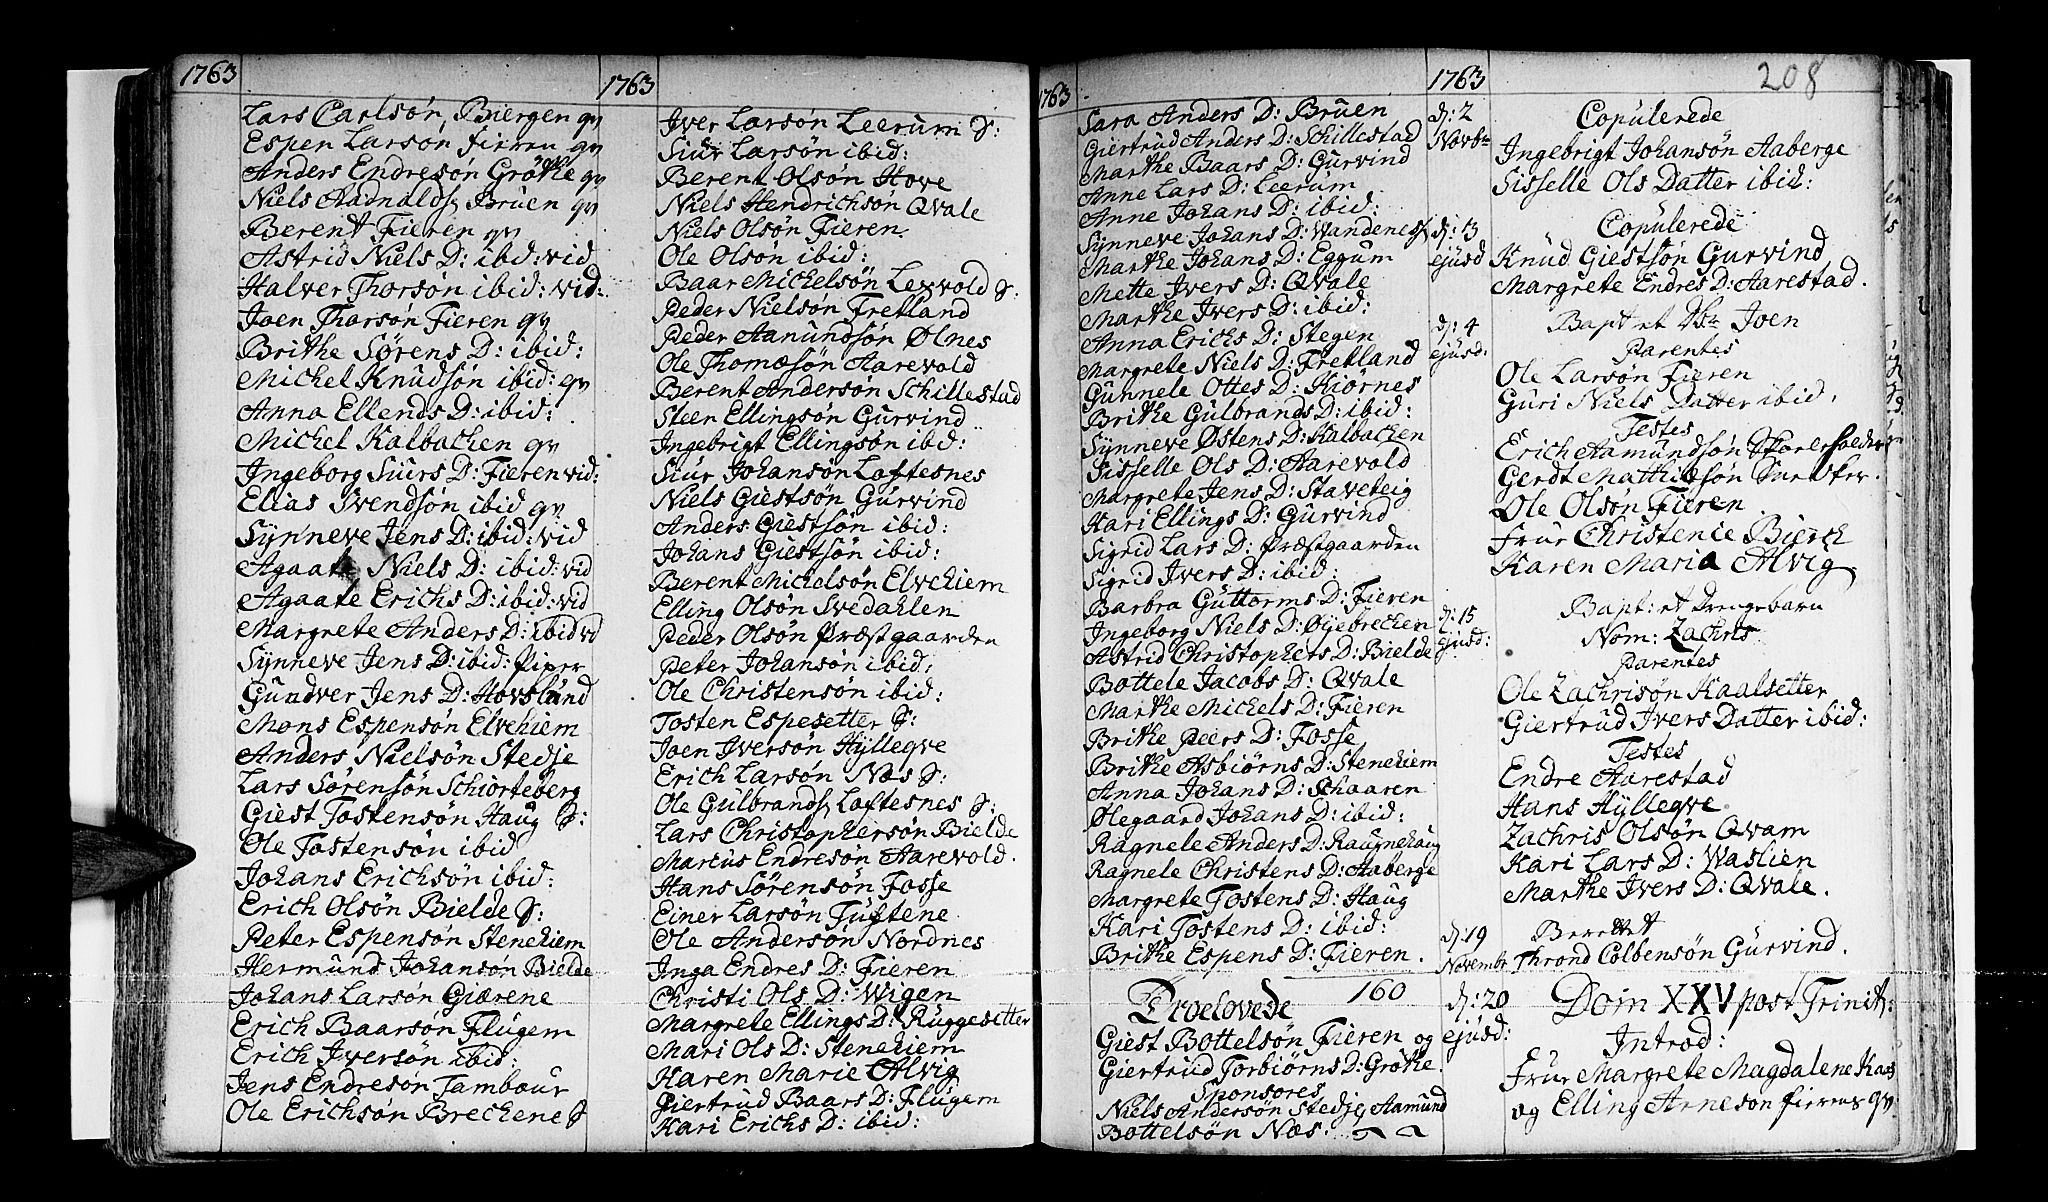 1763
Lars Carlsøn, Biergen qv
Espen Larsøn Fieren qv
Anders Endresøn Grøthe qv
Niels Aadnalds. Bruen qv
Berent Fieren qv
Astrid Niels D: ibid: vid
Halver Thorsøn ibid: vid:
Joen Thorsøn Fieren qv
Brithe Sørens D: ibid:
Michel Knudsøn ibid: qv
Anna Ellends D: ibid:
Michel Kalbachen qv
Ingeborg Siurs D: Fieren vid:
Elias Svendsøn ibid qv
Synneve Jens D: ibid: vid
Agaate Niels D: ibid: vid
Agaate Erichs D: ibid: vid
Margrete Anders D: ibid vid
Synneve Jens D: ibid: Piper
Gundver Jens D: Hovsland
Mons Espensøn Elvehiem
Anders Nielsøn Stedje
Lars Sørensøn Schiorteberg
Giest Tostensøn Haug S:
Ole Tostensøn ibid
Johans Erichsøn ibid:
Erich Olsøn Bielde S:
Peter Espensøn Stenehiem
Hermund Johansøn Bielde
Johans Larsøn Giærene
Erich Baarsøn Flugem
Erich Iversøn ibid:
Jens Endresøn Tambour
Ole Erichsøn Brechene S
1763
Iver Larsøn Leerum S:
Siur Larsøn ibid:
Berent Olsøn Hove
Niels Hendrichsøn Qvale
Niels Olsøn Fieren
Ole Olsøn ibid:
Baar Michelsøn Levold S:
Peder Nielsøn Fretland
Peder Aamundsøn Ølnes
Ole Thomæsøn Aarevold
Berent Andersøn Schillestad
Steen Ellingsøn Gurvind
Ingebrigt Ellingsøn ibid:
Siur Johansøn Loftesnes
Niels Giestsøn Gurvind
Anders Giestsøn ibid:
Johans Giestsøn ibid:
Berent Michelsøn Elvehiem
Elling Olsøn Svedahlen
Peder Olsøn Præstgaarden
Peter Johansøn ibid:
Ole Christensøn ibid:
Tosten Espesetter S:
Joen Iversøn Hyllegve
Erich Larsøn Næs S:
Ole Gulbrands. Loftesnes S:
Lars Christophersøn Bielde
Marcus Endresøn Aarevold.
Hans Sørensøn Fosse
Einer Larsøn Tuftene
Ole Andersøn Nordnes
Inga Endres D: Fieren
Christi Ols D: Wigen
Margrete Ellings D: Ruggesetter
Mari Ols D: Stenehiem
Karen Marie Alvig
Giertrud Baars D: Flugem
Kari Erichs D: ibid:
1763
Sara Anders D: Bruen
Giertrud Anders D: Schillestad
Marthe Baars D: Gurvind
Anne Lars D: Leerum
Anne Johans D: ibid:
Synneve Johans D: Wandenes
Marthe Johans D: Eggum
Mette Ivers D: Qvale
Marthe Ivers D: ibid:
Anna Erichs D: Stegen
Margrete Niels D: Fretland
Gunnele Ottes D: Kiørnes
Brithe Gulbrands D: ibid:
Synneve Østens D: Kalbachen
Sisselle Ols D: Aarevold
Margrete Jens D: Staveteig
Kari Ellings D: Gurvind
Sigrid Lars D: Præstgaarden
Sigrid Ivers D: ibid:
Barbra Guttorms D: Fieren
Ingeborg Niels D: Øyebrechen
Astrid Christophers D: Bielde
Bottele Jacobs D: Qvale
Marthe Michels D: Fieren
Brithe Peers D: Fosse
Brithe Asbiørns D: Stenehiem
Anna Johans D: Schaaren
Ølegaard Johans D: ibid:
Ragnele Anders D: Raugnehaug
Ragnele Christens D: Aaberge
Margrete Tostens D: Haug
Kari Tostens D: ibid:
Brithe Espens D: Fieren.
160
Troelovede
Giest Bottelsøn Fieren og
Giertrud Torbiørns D: Grøthe.
Sponsores
Niels Andersøn Stedje Aamund
Bottelsøn Næs.
1763
208
d: 2 Novbr
Copulerede
Ingebrigt Johansøn Aaberge
Sisselle Ols Datter ibid:
d: 3 ejusd
Copulerede
Knud Giestsøn Gurvind
Margrete Endres D: Aarestad.
d: 4 ejusd:
Bapt: et Bn Joen
Parentes
Ole Larsøn Fieren
Guri Niels Datter ibid.
Testes
Erich Aamundsøn
Gerdt Matthiesøn Snedker.
Ole Olsøn Fieren.
Frue Christenie Bierch
Karen Maria Alvig
d: 15 ejusd:
Bapt: et Drengebarn
Nom: Zachris
Parentes
Ole Zachrisøn Kaalsetter
Giertrud Ivers Datter ibid:
Testes
Endre Aarestad
Hans Hyllegve
Zachris Olsøn Qvam
Kari Lars D: Waslien
Marthe Ivers D: Qvale.
d: 19 Novembr
Berettet
Thrond Colbensøn Gurvind.
d: 20 ejusd:
Dom XXV post Trinit:
Introd:
Frue Margrete Magdalene Kaas
og Elling Arnesøn Fierens qv